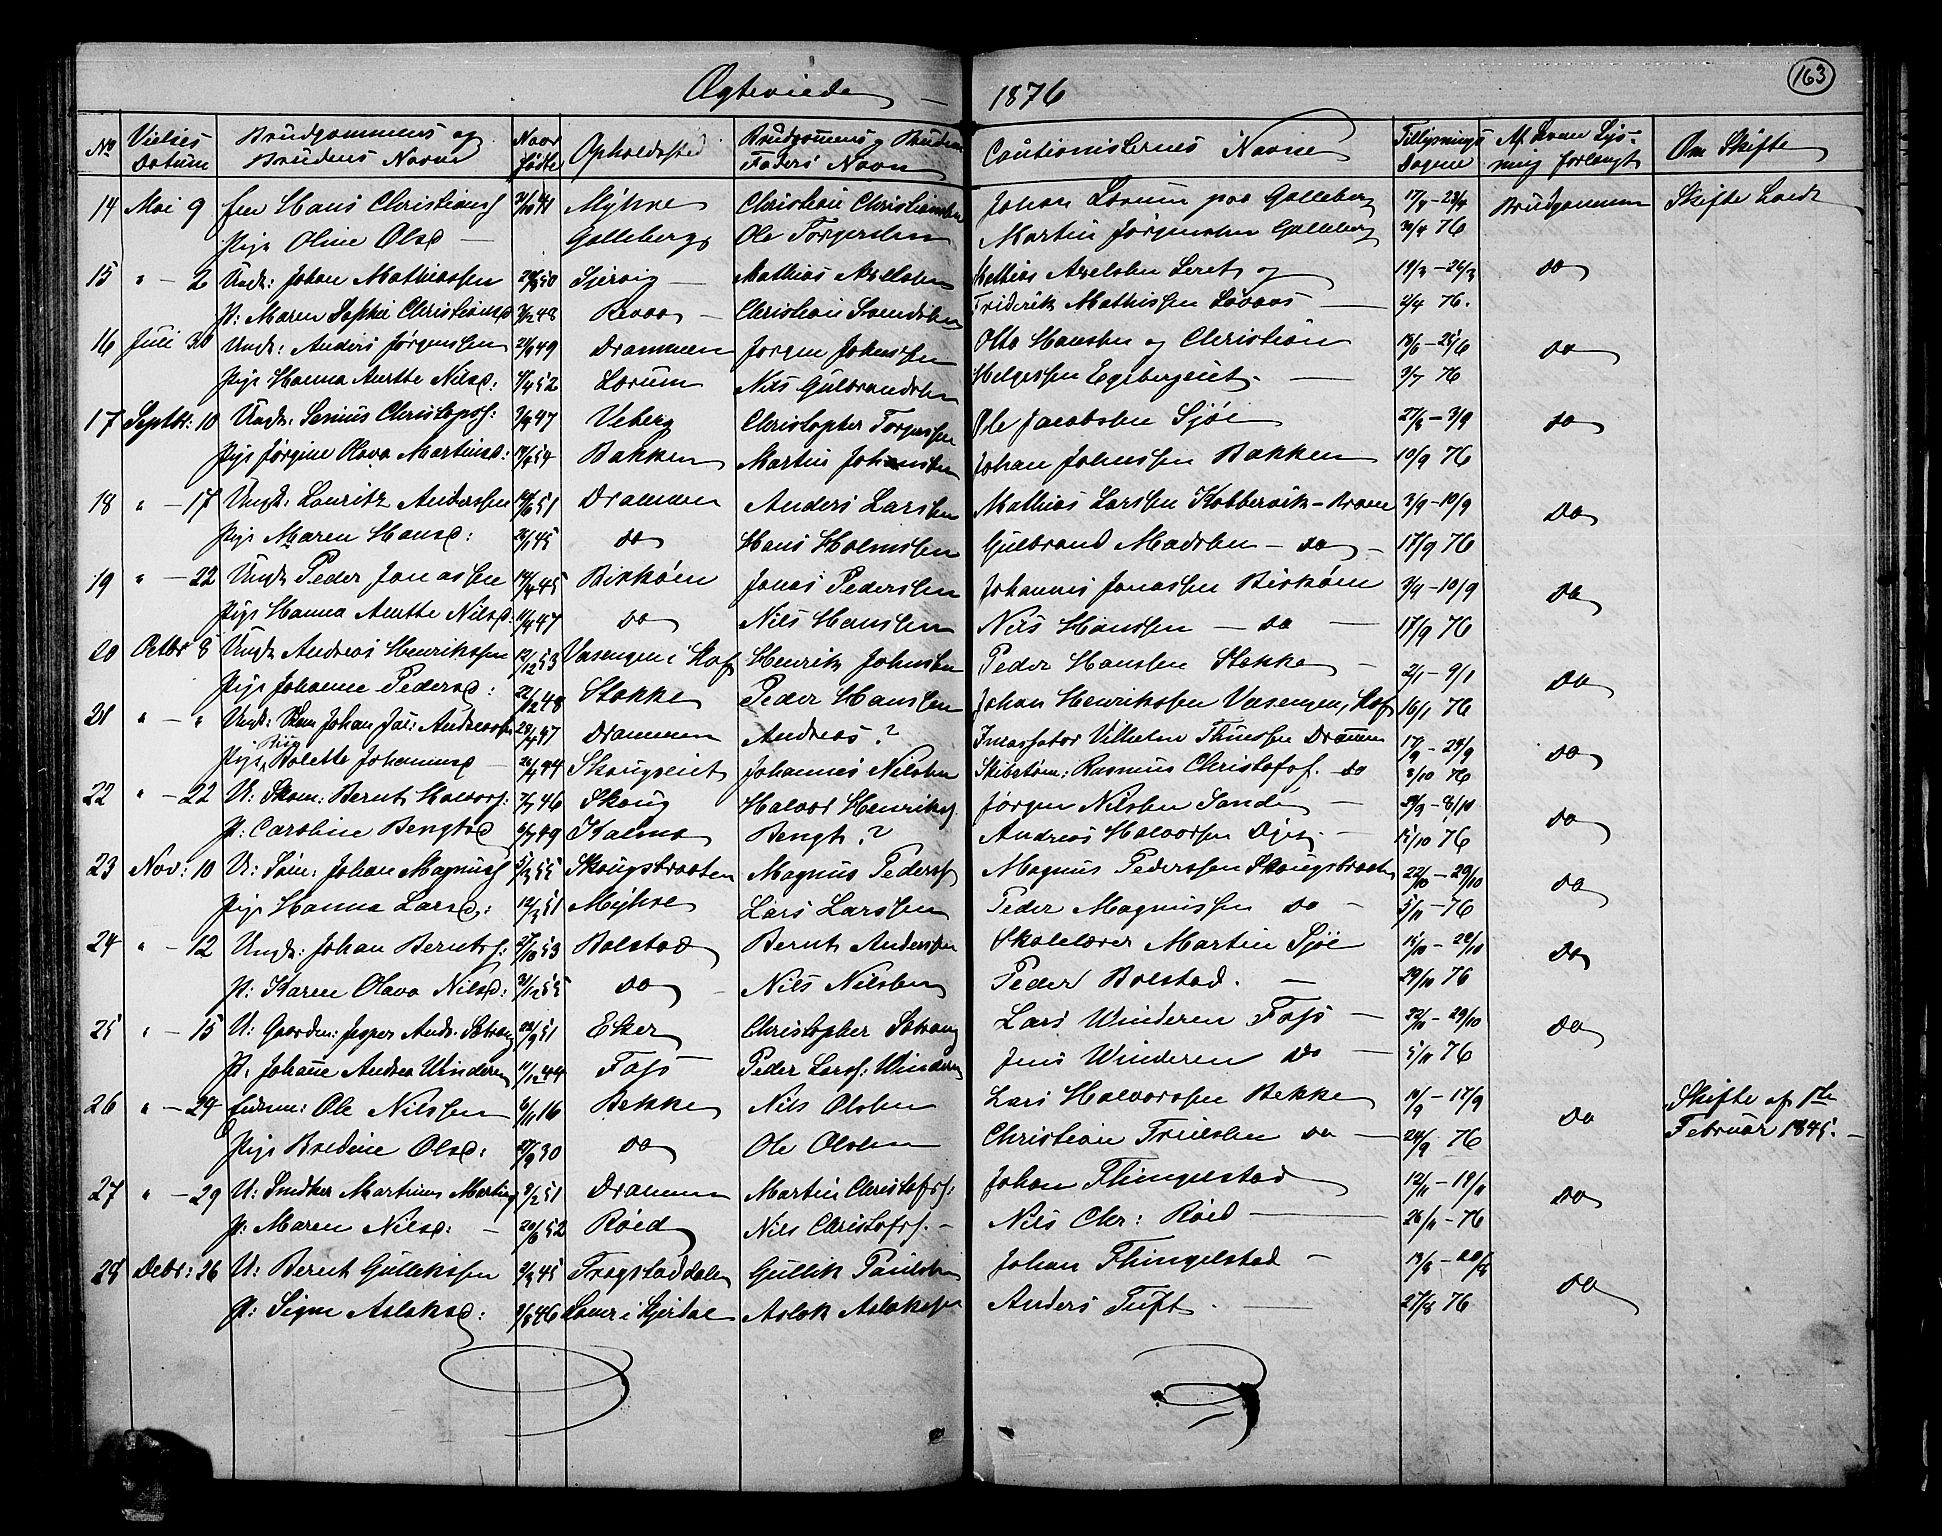 163
Ægteviede — 1876
No Vielses Datum Brudgommens og Brudens Navne Naar fødte Opholdssted Brudgommens og Brudens Faders Navn Cautionisternes Navne Tillysnings Dagene Af hvem Lysning forlangt Om Skifte
14 Mai 9 Hans Christians Myhre Christian Christiansen Johan Lørum paa Galleberg 17/4 – 23/4 Brudgommen Skifte holdt
Pige Oline Olsd — Galleberg Ole Torgersen Martin Jørgensen Galleberg 30/4 76
15 " — 2 Ungk: Johan Mathiassen Mathias Axelsen Mathias Axelsen Leret og 19/3 – 26/3 do
P: Maren Sophie Christiansd Christian Svendsen Friderik Mathissen Løvaas — 2/4 76.
16 Juli 30 Ungk: Anders Jørgenssen Drammen Jørgen Johnssen Otto Hansen og Christian 18/6 – 25/6 do
Pige Hanna Aurthe Nilsd: Lørum Nils Gulbrandsen Helgessen Egebergeiet. — 2/7 76
17 Septbr: 10 Ungk: Senius Christophs: Veberg Christopher Torgersen Ole Jacobsen Sjøe 27/8 – 3/9 do
Pige Jørgine Olava Martinsd: Bakken Martin Johansen Johan Johnssen Bakken 10/9 76
18 " — 17 Ungk: Lauritz Anderssen Drammen Anders Larssen Mathias Larssen Kobbervik – Dramn 3/9 – 10/9 do
Pige Maren Hansd: do Hans Holmssen Gulbrand Madsen — do — 17/9 76
19 " — 22 Ungk Peder Jonassen Jonas Pedersen Johannes Jonassen 3/9 – 10/9 do
Pige Hanna Aurthe Nilsd: 47 do Nils Hanssen Nils Hanssen — do — 17/9 76
20 Octbr 8 Ungk Andreas Henrikssen 53 Vasengen i Hof Henrik Johnsen Peder Hansen Stokke — 2/1 – 9/1 do
Pige Johanne Pedersd: 48 Stokke Peder Hanssen Johan Henrikssen Vasengen, Hof 16/1 76
21 " — " Ungk: Johan Jac: Andreassen 47 Drammen Andreas ? Vilhelm Thuessen Drammen 17/9 – 24/9 do
Pige Bolette Johannesd — 44 Skougseiet Johannes Nilsen Rasmus Christofs. do 8/10 76
22 " — 22 U: Skom: Bernt Halvors: 46 Skoug Halvor Henriks Jørgen Nilsen Sande — do
P: Caroline Bengtsd 49 Bengt ? Andreas Halvorsen — 15/10 76
23 Nov: 10 U: Søm: Johan Magnus 55 Skougsbraaten Magnus Peders Magnus Pederssen Skougsbraaten 22/10 – 29/10 do
Pige Hanna Larsd: 51 Myhre Lars Larssen Peder Magnussen do — 5/11 – 76
24 " — 12 Ungk: Johan Bernts: 53 Bolstad Bernt Andersen Skolelærer Martin Sjøe 15/10 – 22/10 do
P: Karen Olava Nilsd: 55 do Nils Nilsen Peder Bolstad. — 29/10 76
25 " — 15 U: Gaardm: Jesper Andr. 51 Eker Christopher Lars Winderen Foss — 22/10 – 29/10 do
P: Johanne Andrea Winderen 44 Foss Peder Lars: Winderen Jens Winderen do — 5/11 76
26 " — 24 Enkem: Ole Nilssen 16 Bekke Nils Olsen Lars Halvorssen Bekke 10/9 – 17/9 do Skifte af 1ste
Pige Bredine Olsd: 30 do Ole Olsen Christian do — 24/9 76 Februar 1845. —
27 " — 29 U: Snedker Martinus Martins 51 Drammen Martin Christofs: Johan Thingelstad 12/11 – 19/11 do
P: Maren Nilsd: — 52 Røed Nils Christofs. — Nils Chr: Røed — 26/11 – 76
28 Decbr: 26 U: Bernt Gullikssen 45 Gullik Paulsen Johan Thingelstad — do
P: Signe Aslaksd: 46 Aslak Aslakssen Anders Tuft. — 27/8 76